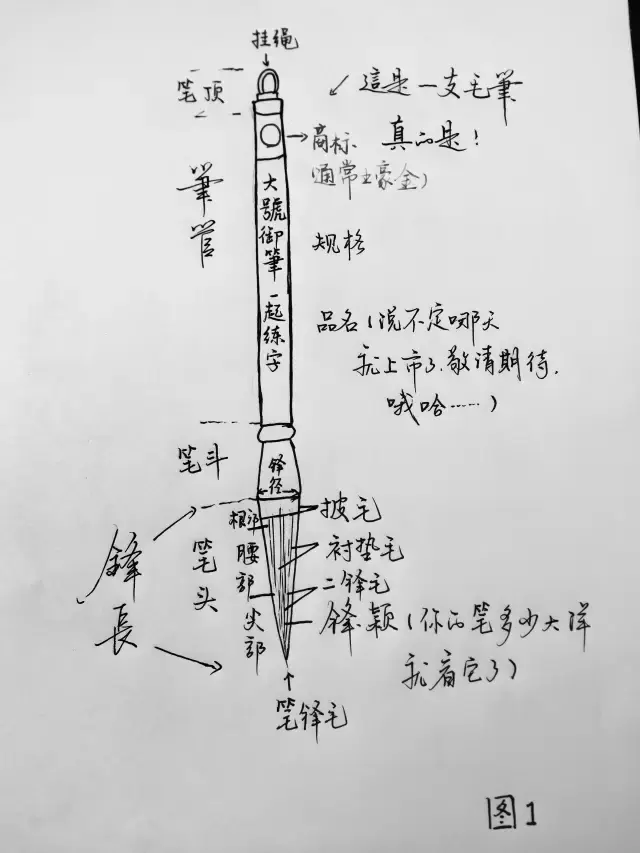 挂绳
笔顶
這是一支毛筆
真的是!
商标
通常主豪金)
筆管
大號御筆一起练字
规格
品名(说不定哪天
就上市了,敬请期待,
哦哈……)
笔斗
锋径
锋長
笔头
根部
腰部
尖部
披毛
衬垫毛
二锋毛
锋颖(你的笔多少大洋
就看它了)
笔锋毛
图1